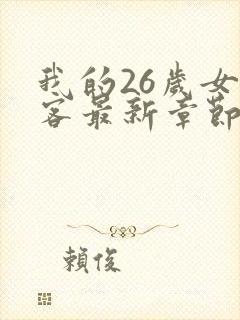 我的26歲女
客最新章節
賴俊